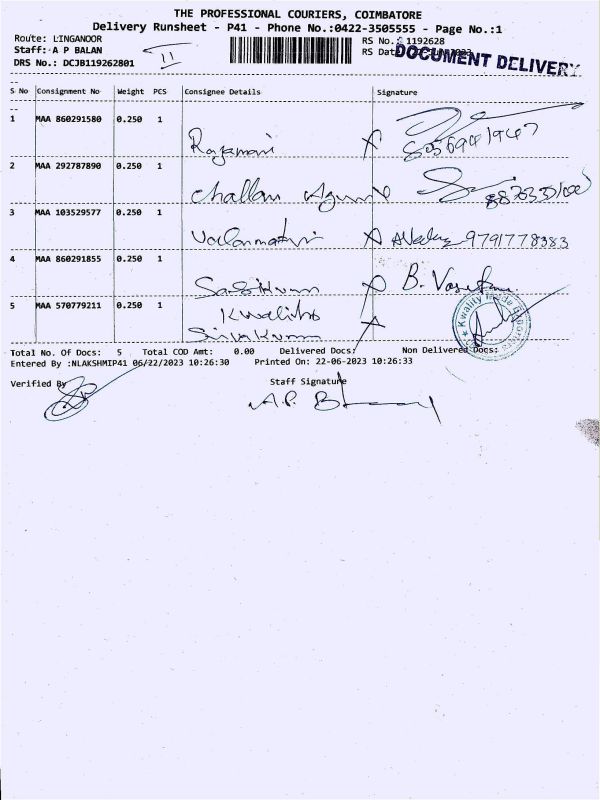 THE PROFESSIONAL COURIERS, COIMBATORE
Delivery Runsheet - P41 - Phone No.:0422-3505555 - Page No.:1
Route: LINGANOOR RS No.: 1192628
Staff: A P BALAN II RS Dat
DOCUMENT DELIVERY
DRS No.: DCJB119262801
S No Consignment No Weight PCS Consignee Details Signature
1 MAA 860291580 0.250 1
Rajamani
2 MAA 292787890 0.250 1
challan
3 MAA 103529577 0.250 1
9791778383
4 MAA 860291855 0.250 1
B.
5 MAA 570779211 0.250 1
Kwality
Sivakumar
Kwality
Total No. Of Docs: 5 Total COD Amt: 0.00 Delivered Docs: Non Delivered Docs:
Entered By :NLAKSHMIP41 06/22/2023 10:26:30 Printed On: 22-06-2023 10:26:33
Verified By Staff Signature
A.P.